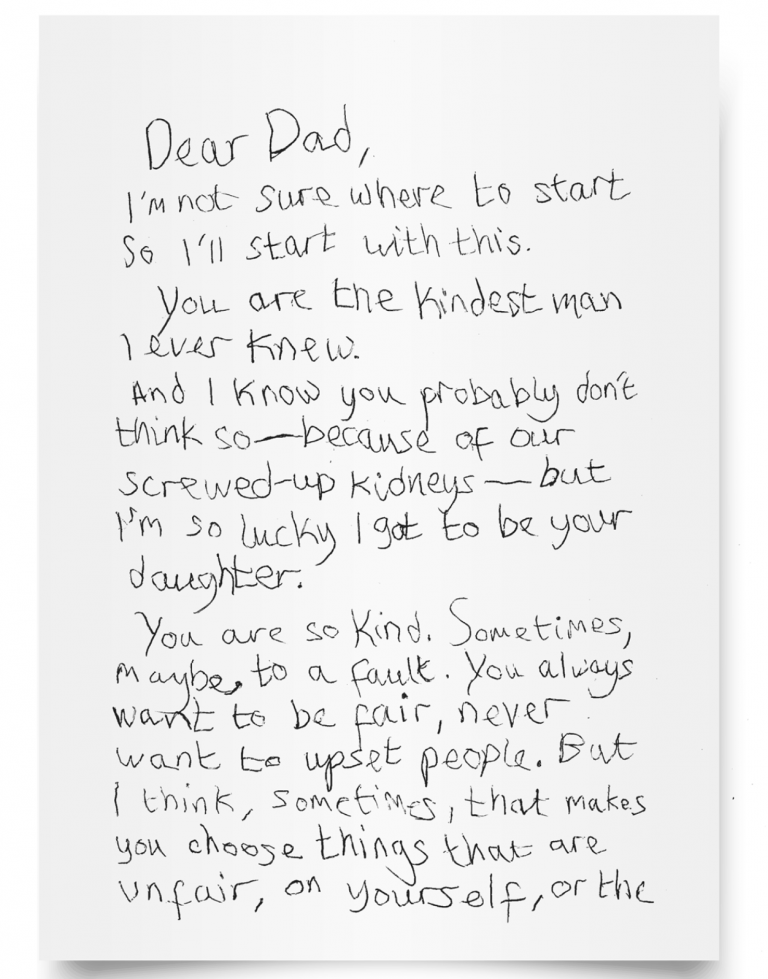 Dear Dad,
I'm not sure where to start
So I'll start with this.
You are the kindest man
I ever knew.
And I know you probably don't
think so—because of our
screwed-up kidneys—but
I'm so lucky I got to be your
daughter.
You are so kind. Sometimes,
maybe, to a fault. You always
want to be fair, never
want to upset people. But
I think, sometimes, that makes
you choose things that are
unfair, on yourself, or the